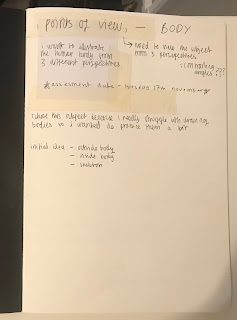 points of view, — BODY
i want to illustrate the human body from 3 different perspectives
↳ need to view the subject from 3 perspectives
angles ???
* assessment date - tuesday 17th november
chose this subject because i really struggle with drawing
bodies so i wanted to practice them a bit.
initial idea - outside body
- inside body
- skeleton